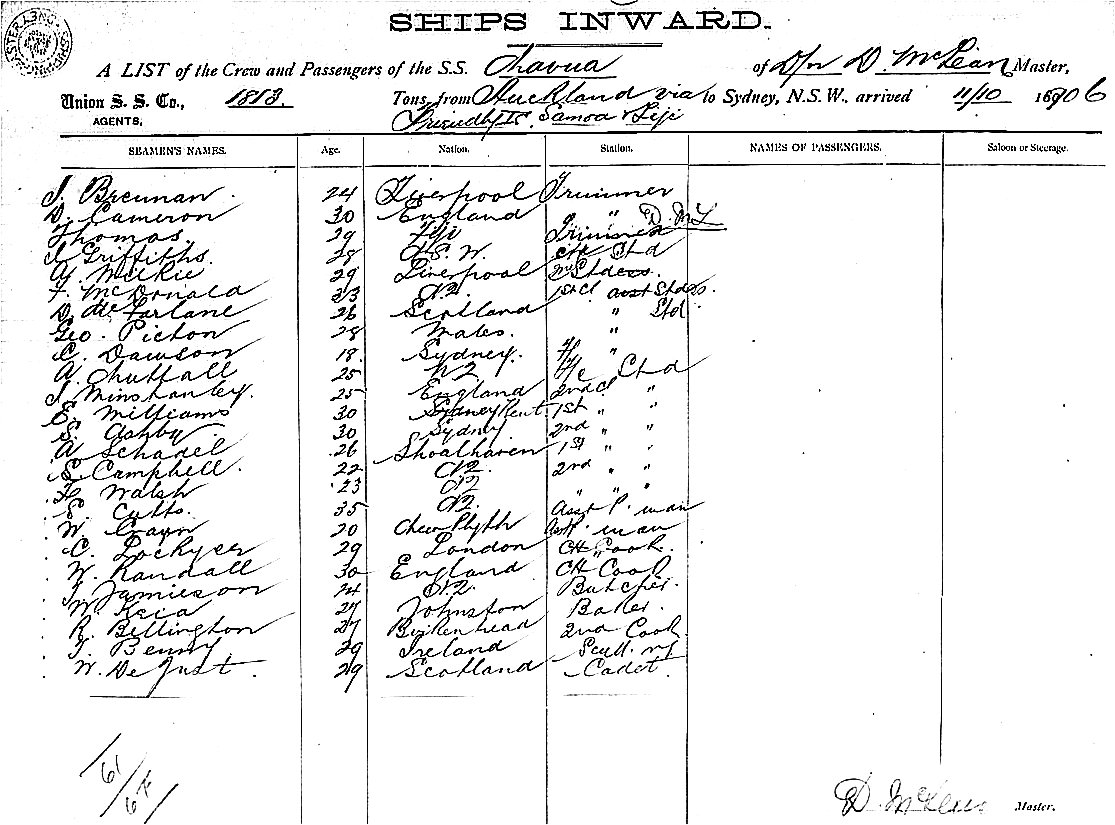 SHIPS INWARD.
A LIST of the Crew and Passengers of the S.S. of D. McLean Master,
Union S. S. Co., 1813. Tons, from Auckland via to Sydney, N.S.W., arrived 11/10 1906
AGENTS, Samoa & Fiji
SEAMEN'S NAMES. Age. Nation. Station. NAMES OF PASSENGERS. Saloon or Steerage.
J. Brennan 24 Liverpool Trimmer
D. Cameron 30 England " D. McL
Thomas 29 Fiji
J. Griffiths. 28 N.S.W. Std
29 Liverpool
F. McDonald 33 N.Z. 1st Cl
D. McFarlane 26 Scotland " Std
Geo. Picton 28 Wales. "
C. Dawson 18. Sydney. "
A. 25 N.Z.
J. Minshanley. 25 England 2nd Cl "
E. Williams 30 Sydney 1st " "
S. Ashby 30 Sydney 2nd " "
A Schadel 26 Shoalhaven 1st " "
S. Campbell. 22 N.Z. 2nd " "
H. Walsh 23 N.Z. " " "
E. Cutts. 35 N.Z. Asst P. man
W. 20 Asst P. man
C. Lockyer 29 London
W. Randall 30 England Ch Cook
J. Jamieson 24 N.Z. Butcher.
W. 27 Johnston Baker.
R. Bellington 27 Birkenhead 2nd Cook
T. Benny 29 Ireland
W. De Just. 29 Scotland Cadet.
D. McLean Master.